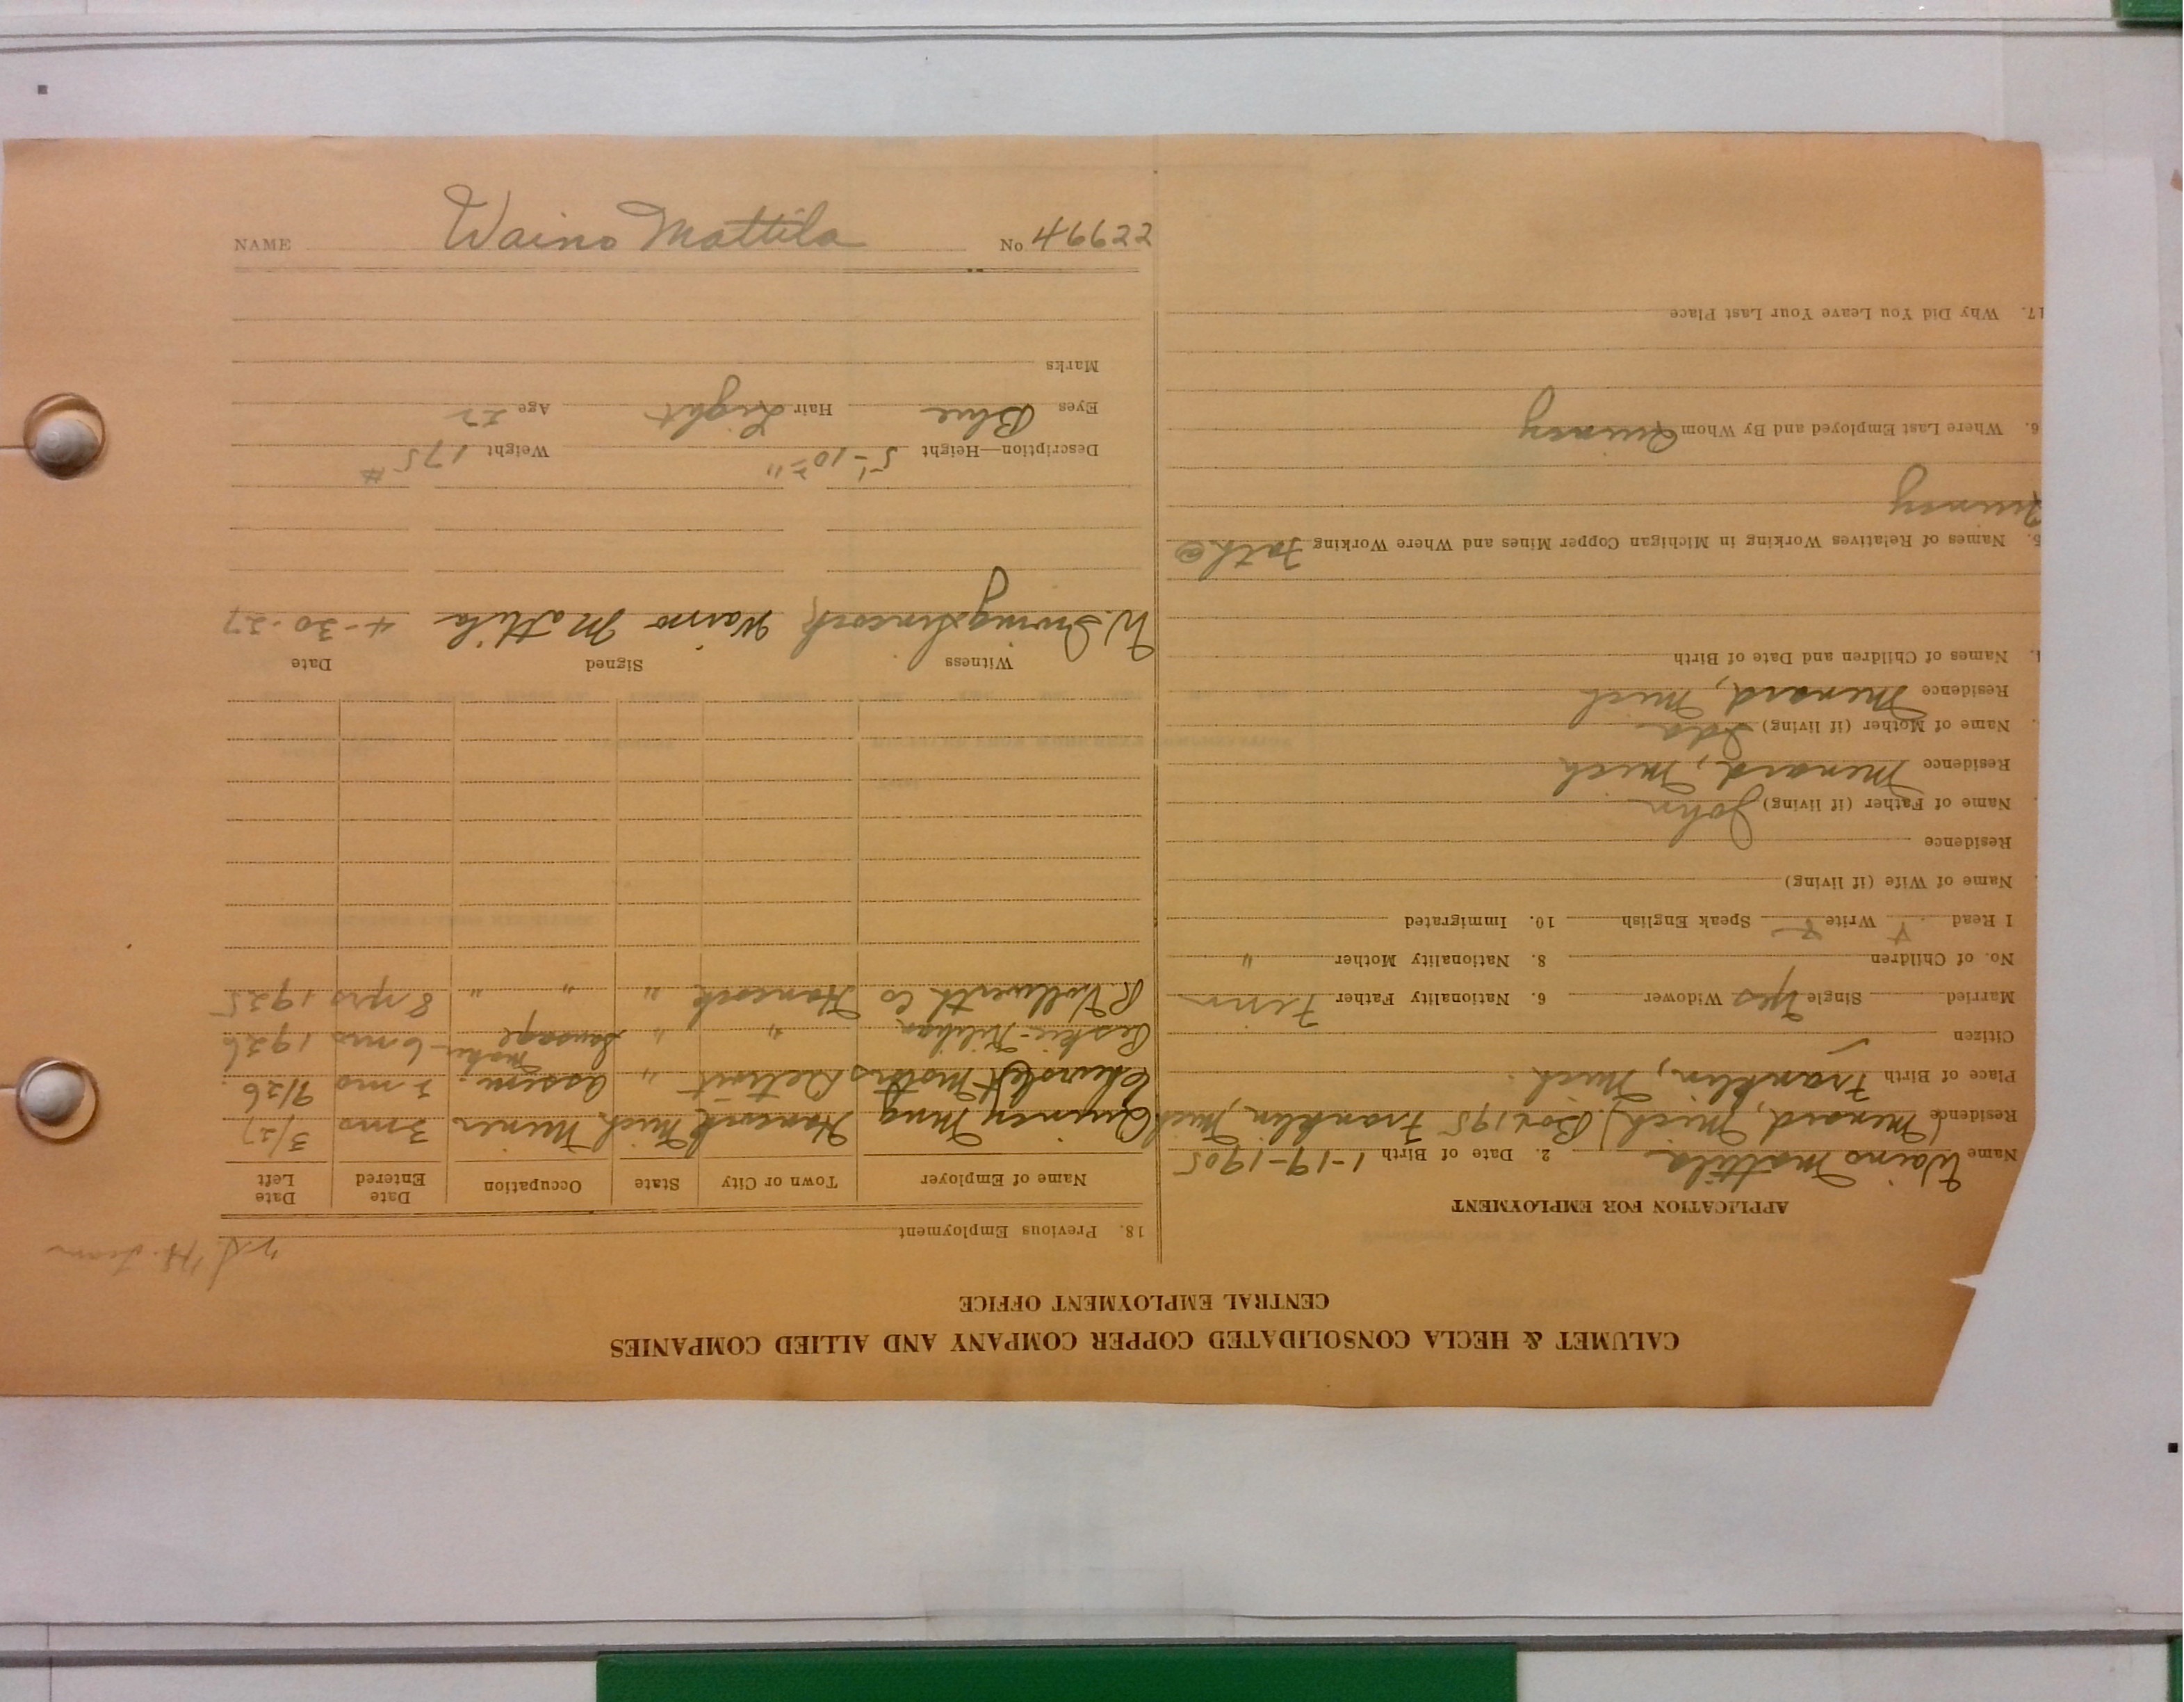 NAME Waino Mattila No 46622
CALUMET & HECLA CONSOLIDATED COPPER COMPANY AND ALLIED COMPANIES
CENTRAL EMPLOYMENT OFFICE
APPLICATION FOR EMPLOYMENT
Name Waino Mattila 2. Date of Birth 1-19-1905
Residence (Menard, Mich) Box 195 Franklin, Mich
Place of Birth Franklin, Mich.
Citizen
Married Single Yes Widower 6. Nationality Father Finn
No. of Children 8. Nationality Mother "
I Read Y Write Y Speak English 10. Immigrated
Name of Wife (if living)
Residence
Name of Father (if living) John
Residence Menard, Mich
Name of Mother (if living) Ida
Residence Menard, Mich
Names of Children and Date of Birth
5. Names of Relatives Working in Michigan Copper Mines and Where Working Fath @
Quincy
6. Where Last Employed and By Whom Quincy
17. Why Did You Leave Your Last Place
18. Previous Employment
Name of Employer Town or City State Occupation Date Entered Date Left
Quincy Mng Hancock Mich Miner 3 mo 3/27
Chevrolet Motors Detroit " assem. 3 mo 9/26
" " Sausage maker 6 mos 1926
R. Vollwerth Co Hancock " " " 8 yrs 1925
Witness Signed Date
W. Irving Waino Mattila 4-30-27
Description—Height 5'-10½" Weight 175#
Eyes Blue Hair Light Age 22
Marks